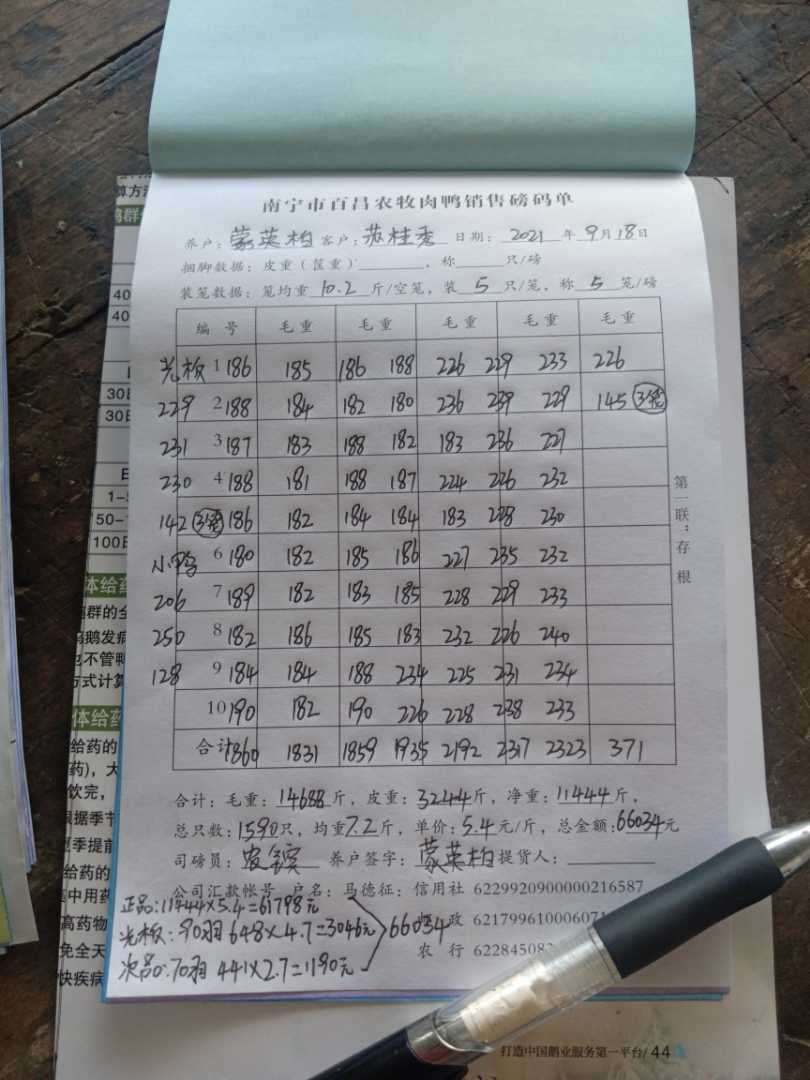 南宁市百昌农牧肉鸭销售磅码单
养户：蒙英柏 客户：苏桂秀 日期：2021年9月18日
捆脚数据：皮重（筐重）________，称______只/磅
装笼数据：笼均重10.2斤/空笼，装5只/笼，称5笼/磅
编号 毛重 毛重 毛重 毛重 毛重
光板 1 186 185 186 188 226 229 233 226
229 2 188 184 182 180 236 239 229 145
231 3 187 183 188 182 183 236 227
230 4 188 181 188 187 224 226 232
142 186 182 184 184 183 228 230
小鸭 6 180 182 185 186 227 235 232
206 7 189 182 183 185 228 229 233
250 8 182 186 185 183 232 226 240
128 9 184 184 188 234 225 231 234
10 190 182 190 226 228 238 233
合计 1860 1831 1859 1935 2192 2317 2323 371
第一联：存根
合计：毛重：14688斤，皮重：3244斤，净重：11444斤，
总只数：1590只，均重7.2斤，单价：5.4元/斤，总金额：66034元
司磅员： 养户签字：蒙英柏 提货人：
公司汇款帐号 户名：马德征：信用社 6229920900000216587
正品：11444×5.4=61798元
光板：90羽 648×4.7=3046元 66034
次品：70羽 441×2.7=1190元
政 621799610006071
农行 622845082
打造中国鹅业服务第一平台/44
算方法
鹅群
40
40
30日
30日
1-5
50-
100日
体给药
鹅群的全
鸡鹅发病
也不管鸭
方式计算
体给药
给药的
药)，大
饮完，
根据季节
夏季提前
给药的
集中用药
高药物
免全天
快疾病